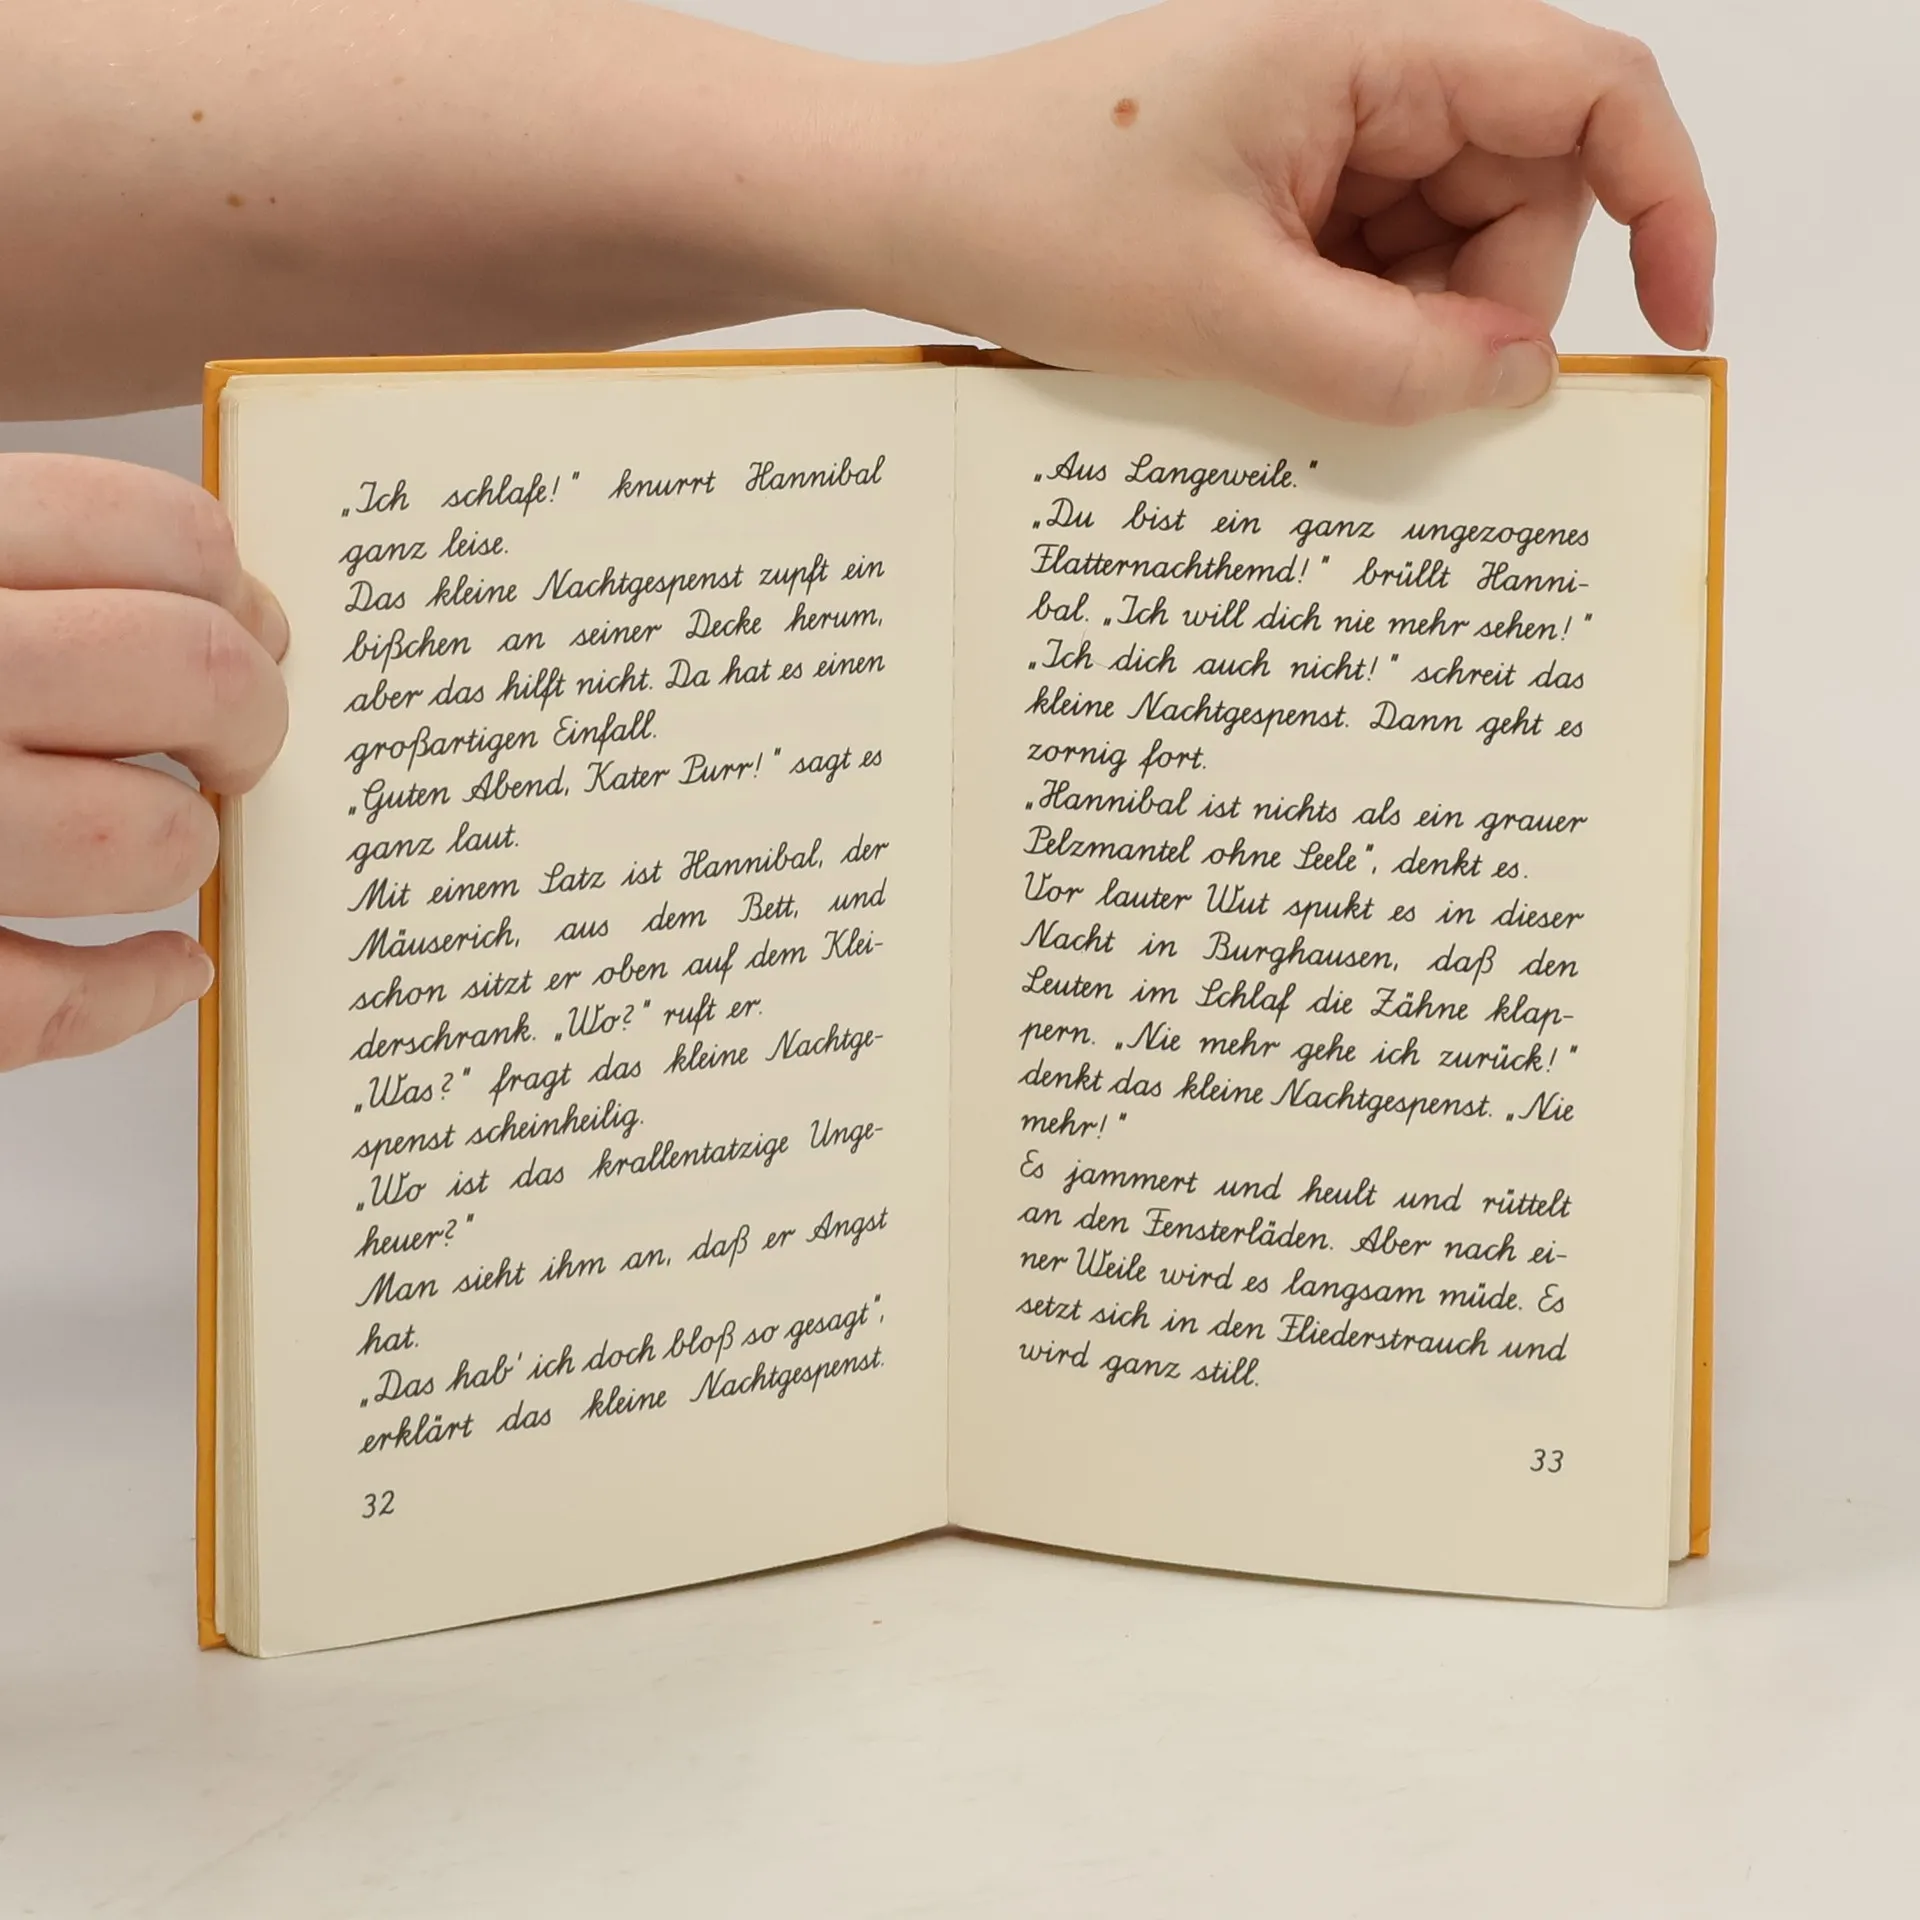 „Ich schlafe!" knurrt Hannibal
ganz leise.
Das kleine Nachtgespenst zupft ein
bißchen an seiner Decke herum,
aber das hilft nicht. Da hat es einen
großartigen Einfall.
„Guten Abend, Kater Purr!" sagt es
ganz laut.
Mit einem Satz ist Hannibal, der
Mäuserich, aus dem Bett, und
schon sitzt er oben auf dem Klei-
derschrank. „Wo?" ruft er.
„Was?" fragt das kleine Nachtge-
spenst scheinheilig.
„Wo ist das krallentatzige Unge-
heuer?"
Man sieht ihm an, daß er Angst
hat.
„Das hab' ich doch bloß so gesagt",
erklärt das kleine Nachtgespenst.
32
„Aus Langeweile."
„Du bist ein ganz ungezogenes
Flatternachthemd!" brüllt Hanni-
bal. „Ich will dich nie mehr sehen!"
„Ich dich auch nicht!" schreit das
kleine Nachtgespenst. Dann geht es
zornig fort.
„Hannibal ist nichts als ein grauer
Pelzmantel ohne Seele", denkt es.
Vor lauter Wut spukt es in dieser
Nacht in Burghausen, daß den
Leuten im Schlaf die Zähne klap-
pern. „Nie mehr gehe ich zurück!"
denkt das kleine Nachtgespenst. „Nie
mehr!"
Es jammert und heult und rüttelt
an den Fensterläden. Aber nach ei-
ner Weile wird es langsam müde. Es
setzt sich in den Fliederstrauch und
wird ganz still.
33